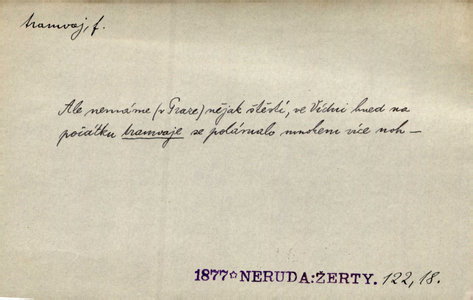 tramvaj, f.
Ale nemáme (v Praze) nějak štěstí, ve Vídni hned na
počátku tramvaje se polámalo mnohem více noh –
1877☆NERUDA:ŽERTY. 122, 18.